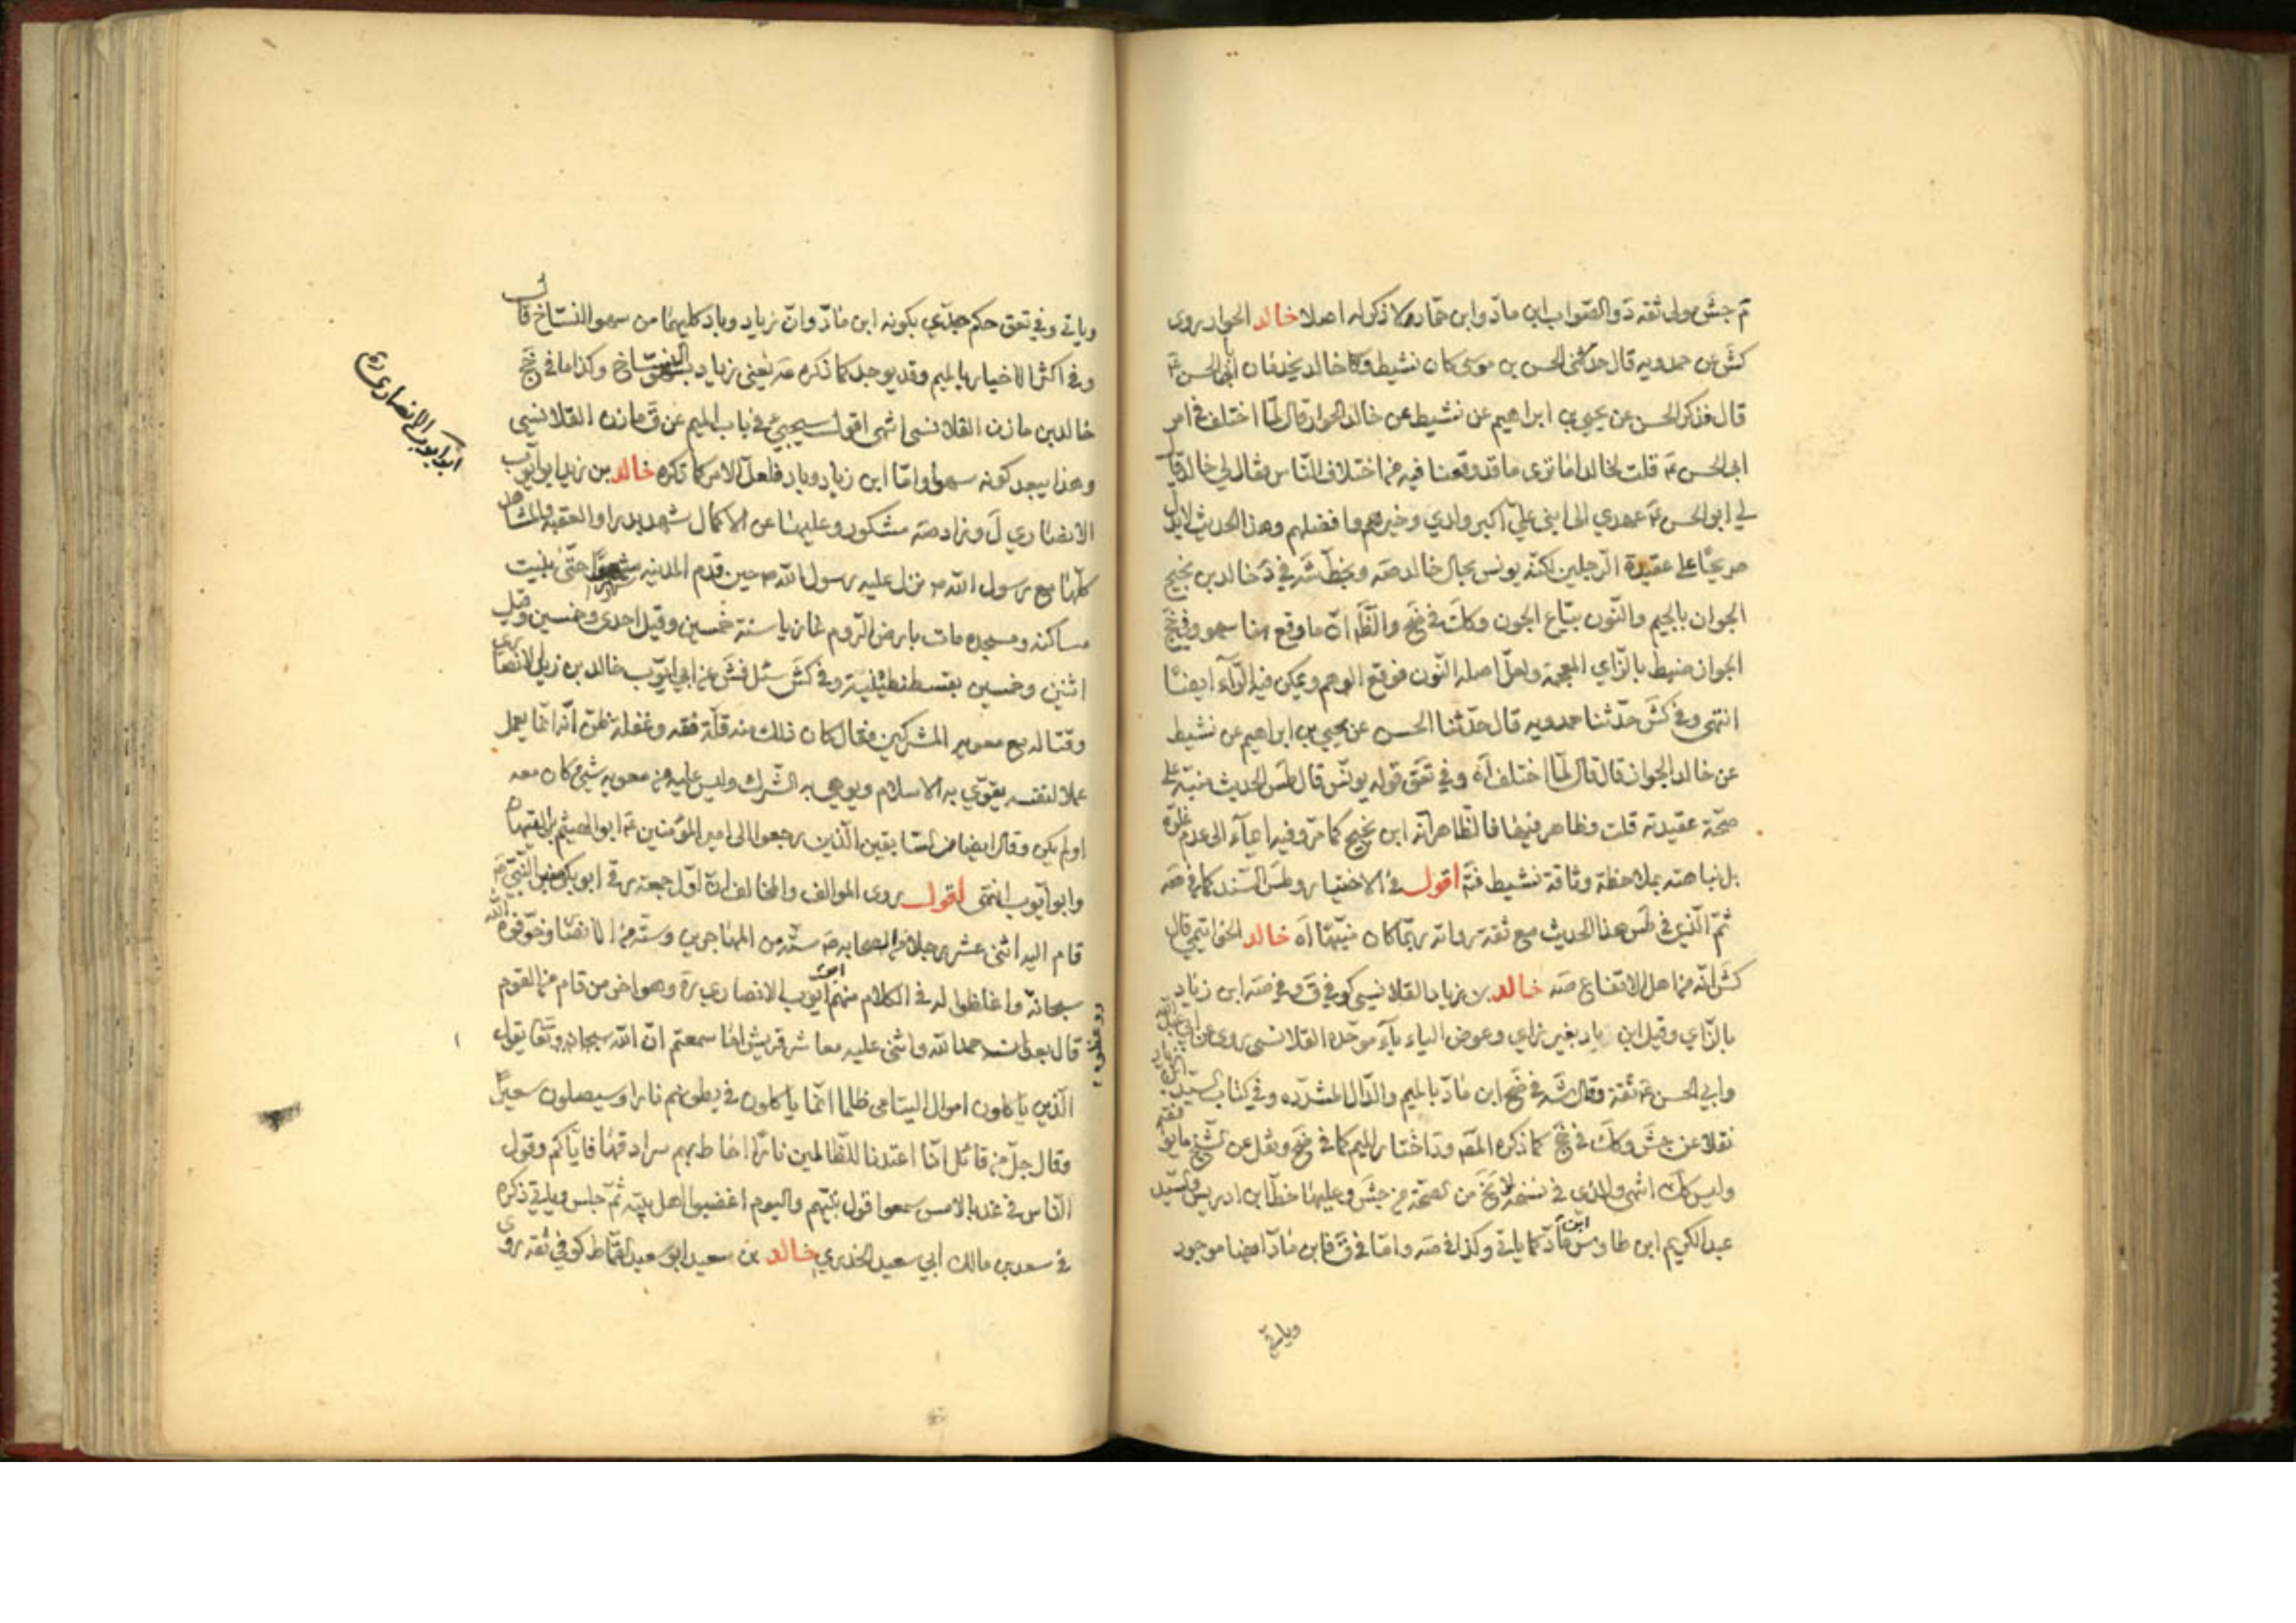 م جش مولى ثقه د والصواب ابن ماد وابن حمار ولا ذكر له اصلا خالد الجواز روى
كش عن حمدويه قال حدثنى الحسن بن موسى كان نشيط وكا خالد يخدمان ابى الحسن ع
قال فذكر الحسن عن يحيى بن ابراهيم عن نشيط عن خالد الجواز قال لما اختلف في امر
ابى الحسن ع قلت لخالد اما ترى ما قد وقعنا فيه من اختلاف الناس فقال لي خالد قال
لي ابو الحسن ع عهدي الى ابنى علي اكبر ولدي وخيرهم وافضلهم وهذا الحديث لا يدل
صريحا على عقيدة الرجلين لكنه يونس بحال خالد صه وبخط شه في د خالد بن نجيح
الجوان بالجيم والنون بياع الجون وكك في ضح والظ ان ما وقع هنا سهو وفي جخ
الجواز ضبط بالزاي المعجمة ولعل اصله النون فوقع الوهم ويمكن فيه الراء ايضا
انتهى وفي كش حدثنا حمدويه قال حدثنا الحسن عن يحيى بن ابراهيم عن نشيط
عن خالد الجواز قال قال لما اختلف اه وفي تعق قوله يونس قال طس الحديث منبه على
صحة عقيدته قلت وظاهر فيهما فالظاهر انه ابن نجيح كما مر وفيه ايماء الى عدم غلوه
بل نباهته بملاحظة وثاقة نشيط فتم اقول في الاختيار وطس السند كما في صه
ثم الذي في طس هذا الحديث مع ثقة رواته ربما كان منبها اه خالد الخواتيمى قال
كش انه من اهل الارتفاع صه خالد بن زياد القلانسى كوفي ق وفي صه ابن زياد
بالزاي وقيل ابن باد بغير زاي وعوض الياء باء موحده القلانسى روى عن ابي عبد الله
وابي الحسن ع ثقة وقال شه في ضح ابن ماد بالميم والدال المشدده وفي كتاب السيد
نقلا عن جش وكك في جخ كما ذكره المص ود اختار الميم كما في ضح ونقل عن الشيخ ما يو
وليس كك انتهى والذي في نسخة من جش وعليها خط ابن ادريس والسيد
عبد الكريم ابن طاوس ابن ماد كما ياتي وكذا في صه واما في ق فابن ماد ايضا موجود
وياتي
وياتي وفي تعق حكم جدي بكونه ابن ماد وان زياد وباد كليهما من سهو النساخ قال
وفي اكثر الاخبار بالميم وقد يوجد كما ذكره صه يعنى زياد النساخ وكذا ما في جخ
خالد بن مازن القلانسى انتهى اقول سيجيئ في باب الميم عن ق مازن القلانسى
وهذا يبعد كونه سهوا واما ابن زياد وباد فلعل الامر كما ذكره خالد بن زيد ابو ايوب
الانصاري ل وزاد صه مشكور وعليهما عن الاكمال شهد بدرا والعقبة والمشاهد
كلها مع رسول الله ص نزل عليه رسول الله ص حين قدم المدينه حتى بنيت
مساكنه ومسجده مات بارض الروم غازيا سنة خمسين وقيل احدى وخمسين وقيل
اثنين وخمسين بقسطنطينية وفي كش سئل فش عن ابي ايوب خالد بن زيد الانصارى
وقتاله مع معويه المشركين فقال كان ذلك منه قلة فقه وغفلة ظن انه انما يعمل
عملا لنفسه يقوي به الاسلام ويوهي به الشرك وليس عليه من معويه شيئ كان معه
اولم يكن وقال ايضا من السابقين الذين رجعوا الى امير المؤمنين ع ابو الهيثم بن التيهان
وابو ايوب انتهى اقول روى الموالف والمخالف ان اول جمعة رقى ابو بكر منبر النبي ص
قام اليه اثنى عشر رجلا من الصحابه ستة من المهاجرين وستة من الانصار وخوفوه الله
سبحانه واغلظوا له في الكلام منهم ابو ايوب الانصاري ره وهو اخر من قام من القوم
قال بعد ان حمد الله واثنى عليه معاشر قريش اما سمعتم ان الله سبحانه وتعا يقول
الذين ياكلون اموال اليتامى ظلما انما ياكلون في بطونهم نارا وسيصلون سعيرا
وقال جل من قائل انا اعتدنا للظالمين نارا احاط بهم سرادقها فاياكم وقول
الناس في غد بالامس سمعوا قول نبيهم واليوم اغضبوا اهل بيته ثم جلس وياتي ذكره
في سعد بن مالك ابي سعيد الخدري خالد بن سعيد ابو سعيد القماط كوفي ثقه روى
ابو ايوب الانصارى ره